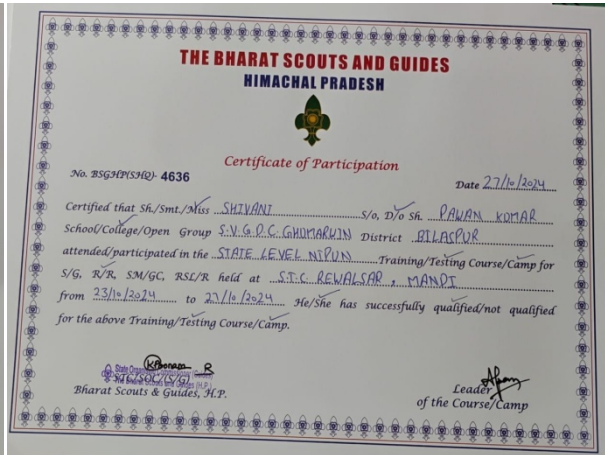 THE BHARAT SCOUTS AND GUIDES
HIMACHAL PRADESH
Certificate of Participation
No. BSGHP(SHQ)- 4636
Date 27/10/2024
Certified that Sh./Smt./Miss SHIVANI S/o, D/o Sh. PAWAN KUMAR
School/College/Open Group S.V.G.D.C. GHUMARWIN District BILASPUR
attended/participated in the STATE LEVEL NIPUN Training/Testing Course/Camp for
S/G, R/R, SM/GC, RSL/R held at S.T.C. REWALSAR, MANDI
from 23/10/2024 to 27/10/2024 He/She has successfully qualified/not qualified
for the above Training/Testing Course/Camp.
STC/SOC/(S/G)
Bharat Scouts & Guides, H.P.
Leader
of the Course/Camp